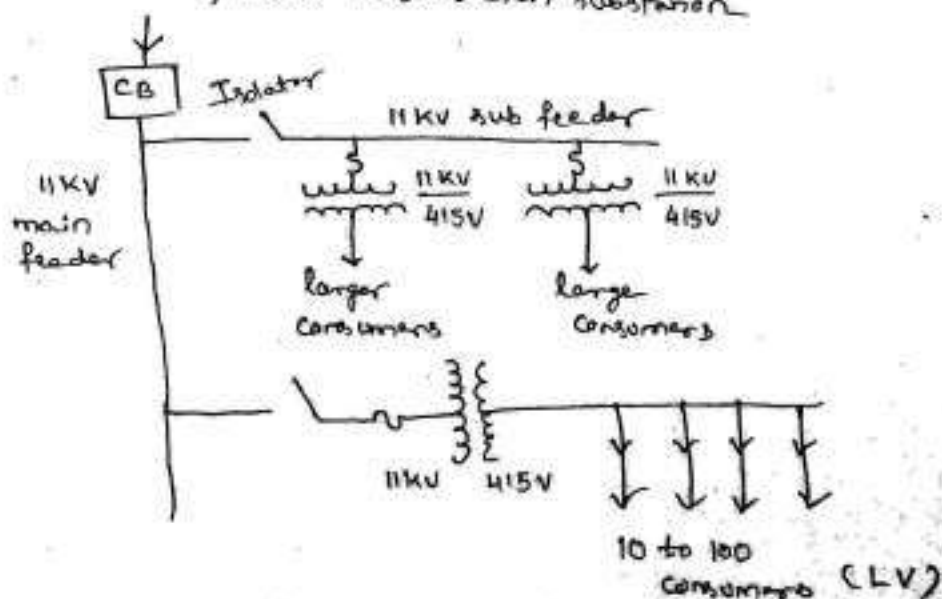 substation
CB
Isolator
11KV sub feeder
11KV
main
feeder
11KV
415V
11KV
415V
larger
consumers
large
consumers
11KV
415V
10 to 100
consumers (LV)